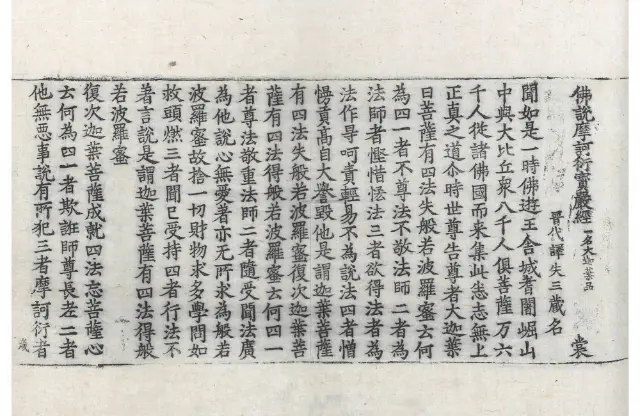 佛說摩訶衍寶嚴經一名大迦葉品 裳
晉代譯失三藏名
聞如是一時佛遊王舍城耆闍崛山
中與大比丘眾八千人俱菩薩万六
千人從諸佛國而來集此悉志無上
正真之道尒時世尊告尊者大迦葉
曰菩薩有四法失般若波羅蜜云何
為四一者不尊法不敬法師二者為
法師者慳惜悋法三者欲得法者為
法作㝵呵責輕易不為說法四者憎
慢貢高自大譽毀他是謂迦葉菩薩
有四法失般若波羅蜜復次迦葉菩
薩有四法得般若波羅蜜云何四一
者尊法敬重法師二者隨受聞法廣
為他說心無愛著亦无所求為般若
波羅蜜故捨一切財物求多學問如
救頭燃三者聞已受持四者行法不
著言說是謂迦葉菩薩有四法得般
若波羅蜜
復次迦葉菩薩成就四法忘菩薩心
云何為四一者欺誑師尊長差二者
他無惡事說有所犯三者摩訶衍者